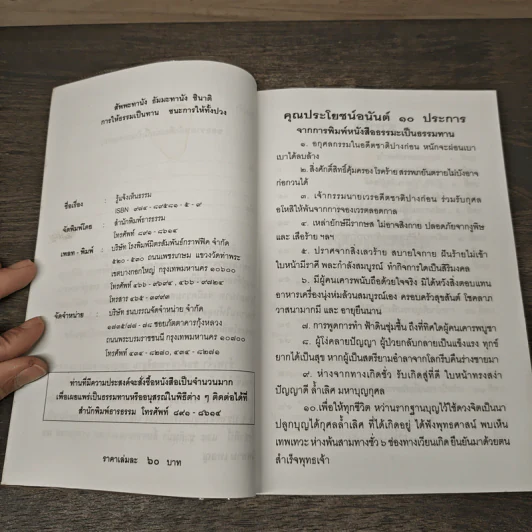 สัพพะทานัง ธัมมะทานัง ชินาติ
การให้ธรรมเป็นทาน ชนะการให้ทั้งปวง
ชื่อเรื่อง : รู้แจ้งเห็นธรรม
ISBN ๙๗๔-๘๙๕๘๑-๕-๙
จัดพิมพ์โดย : สำนักพิมพ์ธารธรรม
โทรศัพท์ ๘๙๑-๘๖๑๔
เพลท - พิมพ์ : บริษัท โรงพิมพ์มิตรสัมพันธ์กราฟฟิค จำกัด
๕๒๐-๕๓๐ ถนนเพชรเกษม แขวงวัดท่าพระ
เขตบางกอกใหญ่ กรุงเทพมหานคร ๑๐๖๐๐
โทรศัพท์ ๔๖๖-๓๙๒๔, ๔๖๖-๙๘๒๔
โทรสาร ๔๖๕-๓๙๙๓
จัดจำหน่าย : บริษัท ธนบรรณจัดจำหน่าย จำกัด
ซอยวัดดาคารกุ้งหลวง
ถนนพระบรมราชชนนี กรุงเทพมหานคร ๑๐๗๐๐
โทรศัพท์ ๔๓๔-๘๒๗๐, ๔๓๔-๘๒๗๑
ท่านที่มีความประสงค์จะสั่งซื้อหนังสือเป็นจำนวนมาก
เพื่อเผยแพร่เป็นธรรมทานหรืออนุสรณ์ในพิธีต่าง ๆ ติดต่อได้ที่
สำนักพิมพ์ธารธรรม โทรศัพท์ ๘๙๑-๘๖๑๔
ราคาเล่มละ ๖๐ บาท
คุณประโยชน์อนันต์ ๑๐ ประการ
จากการพิมพ์หนังสือธรรมะเป็นธรรมทาน
๑. อกุศลกรรมในอดีตชาติปางก่อน หนักจะผ่อนเบา
เบาได้ลบล้าง
๒. สิ่งศักดิ์สิทธิ์คุ้มครอง โรคร้าย สรรพภยันตรายไม่บังอาจ
ก่อกวนได้
๓. เจ้ากรรมนายเวรอดีตชาติปางก่อน ร่วมรับกุศล
อโหสิให้พ้นจากการจองเวรตลอดกาล
๔. เหล่ายักษ์ผีรากษส ไม่อาจสิงกาย ปลอดภัยจากงูพิษ
และ เสือร้าย ฯลฯ
๕. ปราศจากสิ่งเลวร้าย สบายใจกาย ฝันร้ายไม่เข้า
ใบหน้ามีราศี พละกำลังสมบูรณ์ ทำกิจการใดเป็นสิริมงคล
๖. มีผู้คนเคารพนับถือด้วยใจจริง มิได้หวังสิ่งตอบแทน
อาหารเครื่องนุ่งห่มล้วนสมบูรณ์เอง ครอบครัวสุขสันต์ โชคลาภ
วาสนามากมี และ อายุยืนนาน
๗. การพูดการทำ ฟ้าดินชุ่มชื้น ถึงที่ทิศใดผู้คนเคารพบูชา
๘. ผู้โง่คลายปัญญา ผู้ป่วยกลับกลายเป็นแข็งแรง ทุกข์
ยากได้เป็นสุข หากผู้เป็นสตรียามชำลาจากโลกรีบคืนร่างชายมา
๙. ห่างจากทางเกิดชั่ว รับเกิดสู่ที่ดี ใบหน้าทรงสง่า
ปัญญาดี ล้ำเลิศ มหาบุญกุศล
๑๐. เพื่อให้ทุกชีวิต หว่านรากฐานบุญไว้ใช้ดวงจิตเป็นนา
ปลูกบุญได้กุศลล้ำเลิศ ที่ได้เกิดอยู่ ได้ฟังพุทธศาสน์ พบเห็น
เทพเทวะ ห่างพ้นสามทางชั่ว ๖ ช่องทางเวียนเกิด ยืนยันมาด้วยตน
สำเร็จพุทธเจ้า